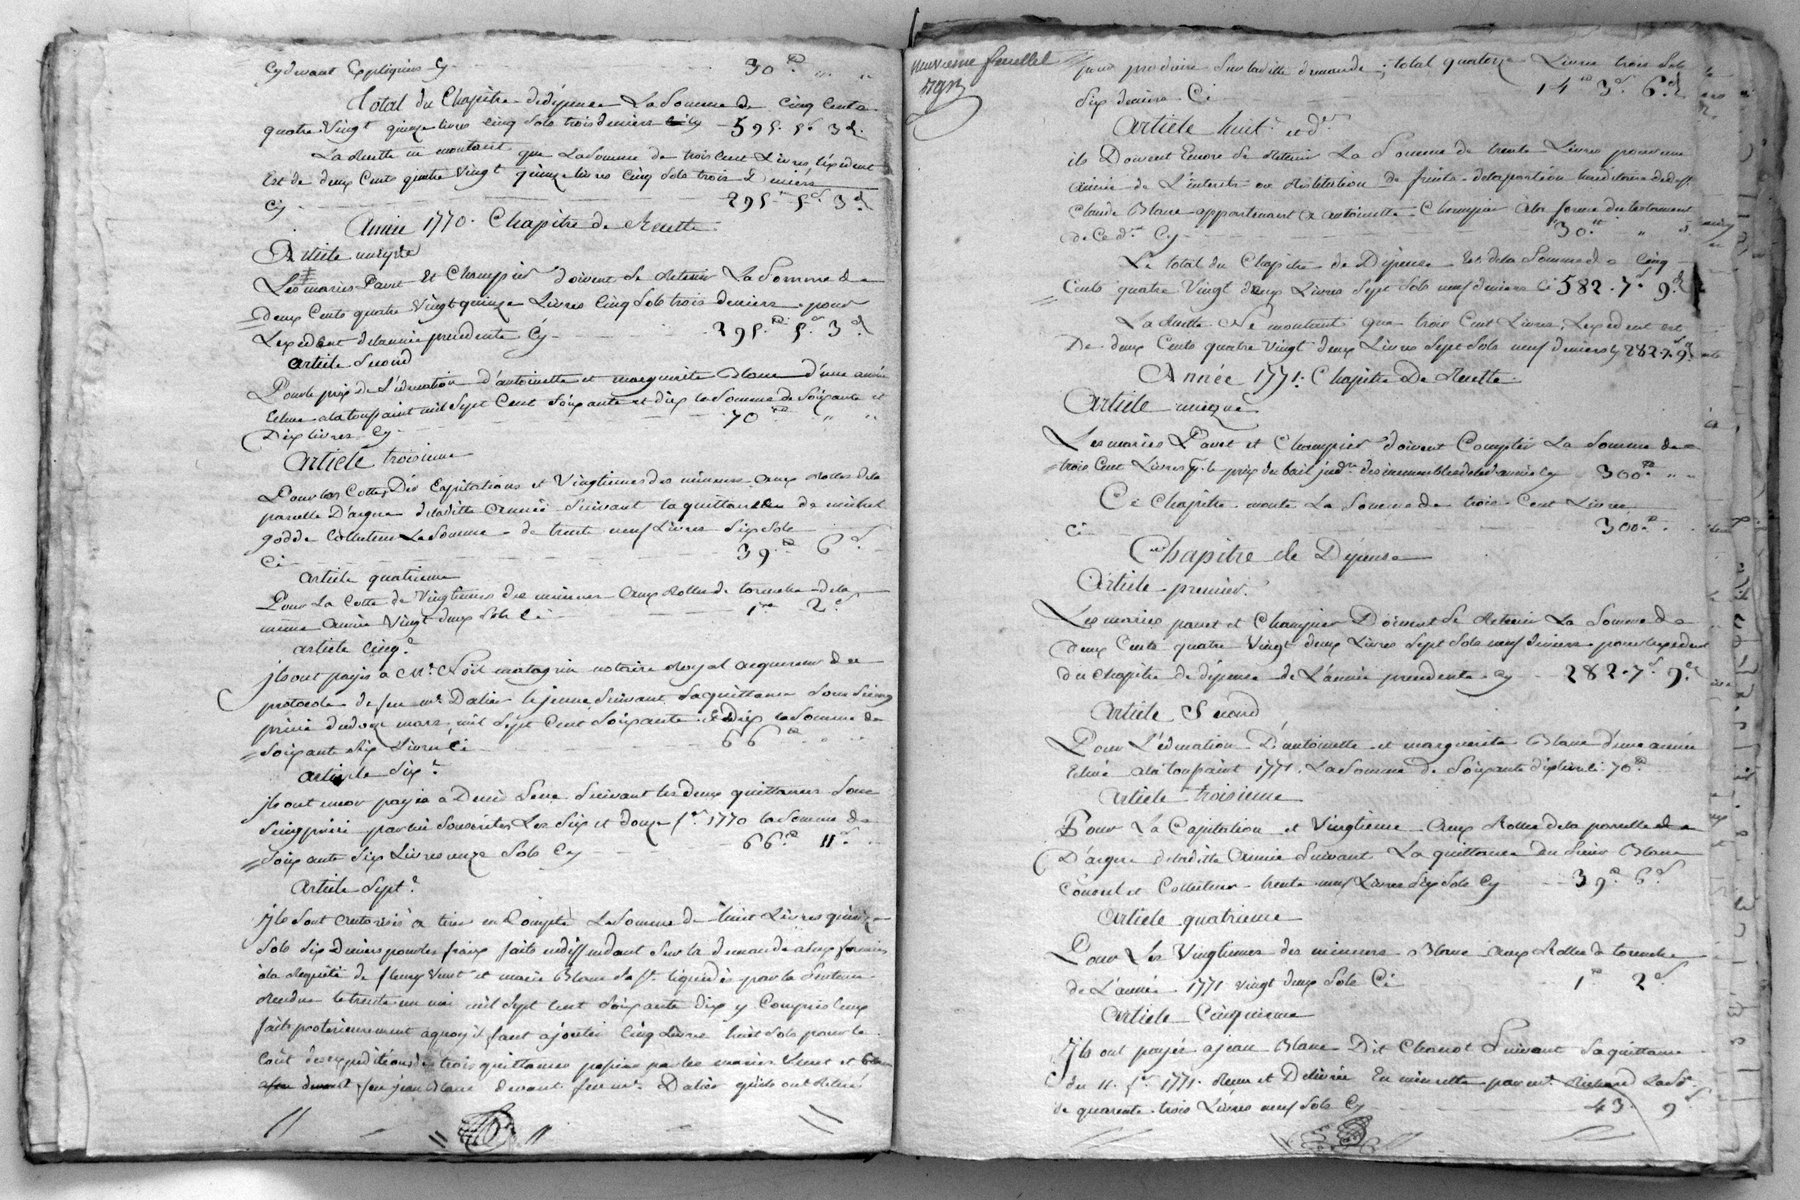 cydevant Expliquées Cy 30 ₶ " "
Total du Chapitre dedépense La Somme de Cinq Cents
quatre Vingt quinze livres Cinq Sols trois deniers Cy 595. 5 s 3 d.
La Recette ne montant que La Somme de trois Cent Livres L'expédent
Est de deux Cents quatre Vingt quinze livres Cinq Sols trois Deniers
Cy 295 5 s 3 d
Année 1770. Chapitre de Recette
Article unique
Les maries Pavet Et Champier doivent Se Retenir La Somme de
deux Cents quatre Vingt quinze Livres Cinq Sols trois deniers pour
L'expedent delannée precedente Cy 295 ₶ 5 s 3 d
article Second
Pour le prix de L'éducation d'antoinette et marguerite Blanc d'une année
Echue ala toussaint mil Sept Cent Soixante et dix la Somme de Soixante et
Dix livres Cy 70 ₶ " "
Article troisieme
Pour les Cottes Des Capitations et Vingtiemes des mineurs aux Rolles dela
parcelle D'argue deladitte année Suivant la quittance de michel
godde Collecteur La Somme de trente neuf Livres Six Sols
Ci 39 ₶ 6 s
article quatrieme
Pour La Cotte de Vingtiemes des mineurs aux Rolles de tourneke dela
même année Vingt deux Sols Ci 1 ₶ 2 s
article cinq.e
ils ont payés a Mr Noël matagrin notaire Royal acquereur de
protocole de feu mr Dalier le jeune Suivant Sa quittance Sous Seing
privé du douze mars mil Sept Cent Soixante et Dix la Somme de
Soixante Six Livres Ci 66 ₶ " "
article Six.e
ils ont encor payés a Denis Serre Suivant les deux quittances Sous
Seing privé par lui Souscrittes Les Six et douze 1770 la Somme de
Soixante Six Livres onze Sols Cy 66 ₶ 11 s
article Sept.e
Ils Sont autorisés a tenir en Compte La Somme de huit Livres quinze
Sols Six Deniers pour les fraix faits en deffendant Sur la demande
ala Requête de fleury Vinet et marie Blanc Sa ft. liquidés par la Sentence
Rendue le trente un mai mil Sept Cent Soixante Dix y Compris Ceux
faits posterieurement aquoy il faut ajouter Cinq Livres huit Sols pour le
Coût des expeditions des trois quittances passées par les maries Vinet et Blanc
feu jean Blanc devant feu mr. Dalier qu'ils ont Retiré
neuvieme feuillet
pour produire Sur laditte demande, total quatorze Livres trois Sols
Six deniers Ci 14 ₶ 3 s 6 d
Article huit.e et d.er
ils Doivent Encore Se Retenir La Somme de trente Livres pour une
année de L'interets ou Restitution de fruits dela portion hereditaire dudeff.
Claude Blanc appartenant a antoinette Champier ala forme du testament
de Ce d.er Cy 30 ₶ " "
Le total du Chapitre de Dépense Est dela Somme de Cinq
Cents quatre Vingt deux Livres Sept Sols neuf deniers Ci 582. 7 s 9 d
La Recette Ne montant que trois Cent Livres, L'expedent est
De deux Cents quatre Vingt deux Livres Sept Sols neuf deniers Cy 282. 7 s 9 d
Année 1771. Chapitre De Recette
Article unique
Les maries Pavet et Champier doivent Compter La Somme de
trois Cent Livres pr. le prix du bail jud.re des immeubles deladt année Cy 300 ₶ " "
Ce Chapitre monte La Somme de trois Cent Livres
Ci 300 ₶
Chapitre de Dépense
Article premier
Les maries pavet et Champier Doivent Se Retenir La Somme de
deux Cents quatre Vingt deux Livres Sept Sols neuf deniers pour l'expedent
du Chapitre de dépense de L'année precedente Cy 282. 7 s 9 d
Article Second
Pour L'éducation D'antoinette et marguerite Blanc d'une année
Echue ala toussaint 1771. La Somme de Soixante dix livres Ci 70 ₶
Article troisieme
Pour La Capitation et Vingtieme aux Rolles dela parcelle
D'argue deladitte année Suivant La quittance du Sieur Blanc
Consul et Collecteur trente neuf Livres Six Sols Cy 39 ₶ 6 s
Article quatrieme
Pour Les Vingtiemes des mineurs Blanc aux Rolles de tourneke
de L'année 1771 vingt deux Sols Ci 1 ₶ 2 s
Article Cinquieme
Ils ont payés a jean Blanc Dit Chanot Suivant Sa quittance
du 11. 1771. Reçue et Delivrée En minutte par mr. Richard La Se.
de quarente trois Livres neuf Sols Cy 43. 9 s